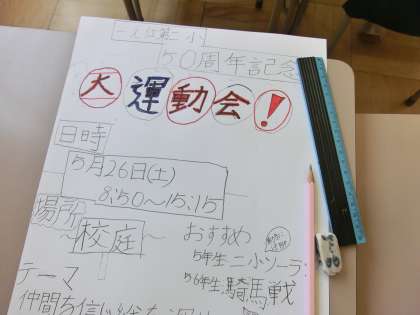 二小
50周年記念
大運動会!
日時
5月26日(土)
8:50〜15:15
場所
〜校庭〜
おすすめ
5年生 二小ソーラン
5・6年生 騎馬戦
テーマ
仲間を信じ